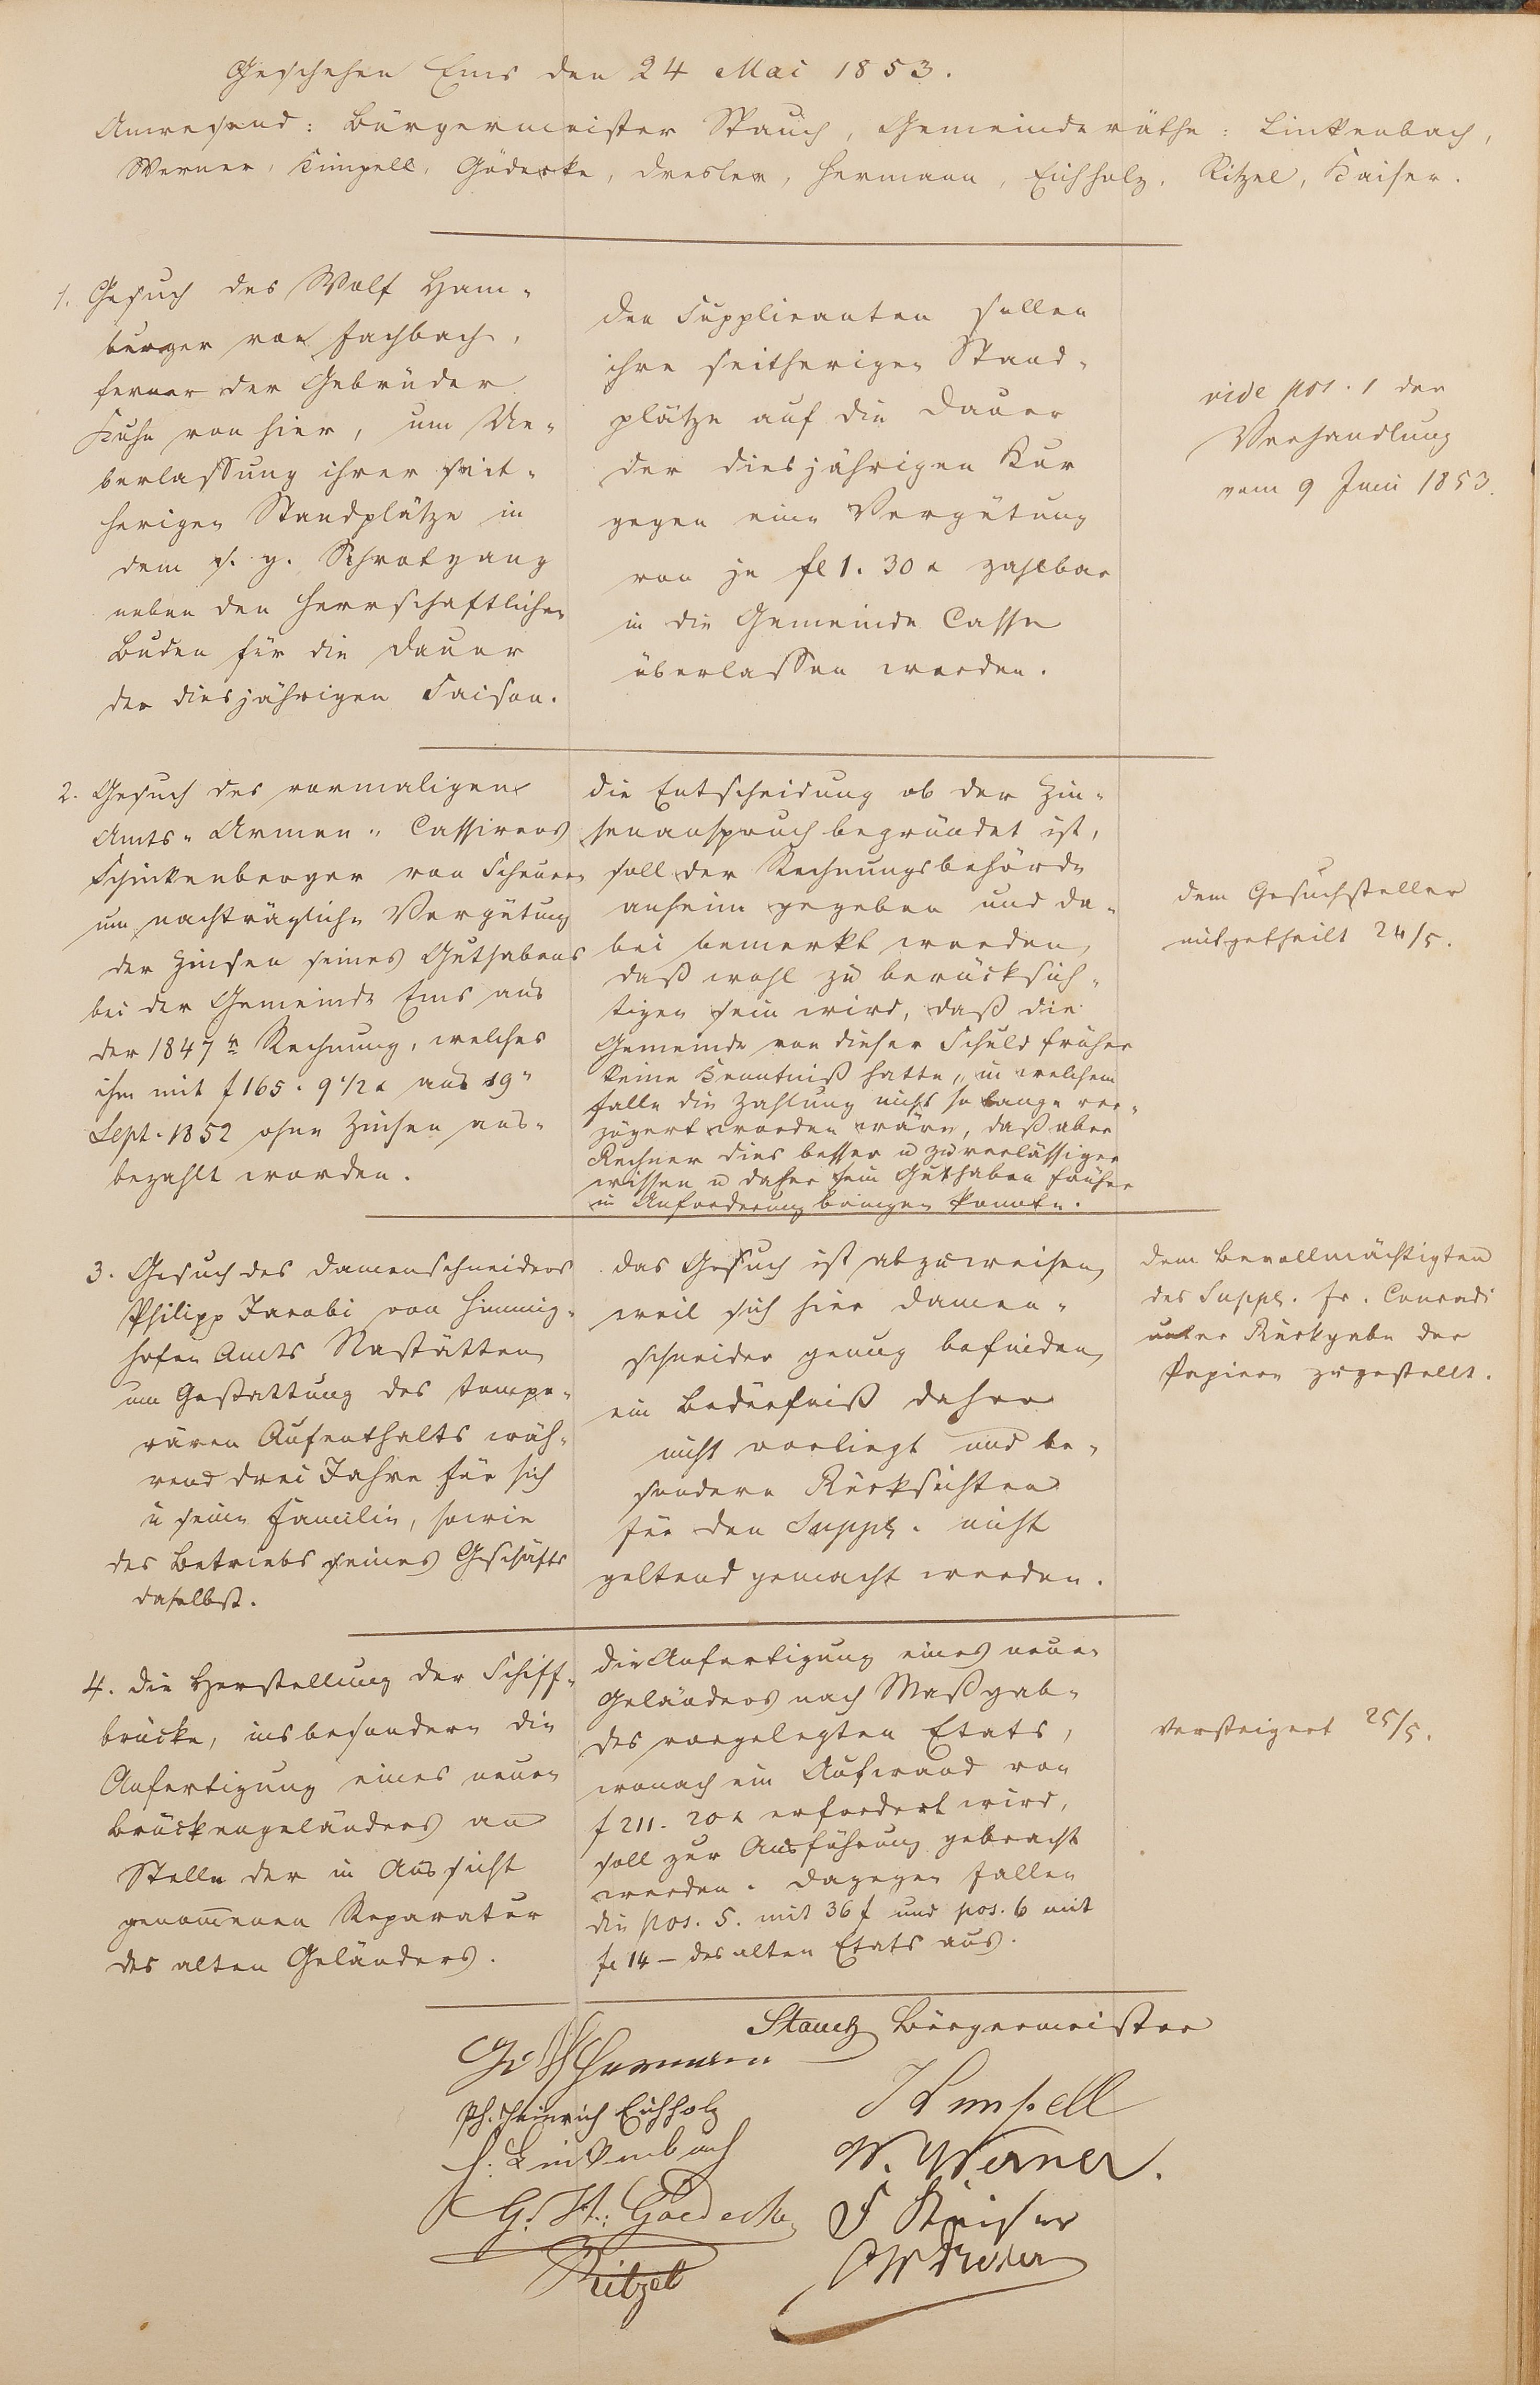 Geschehen Ems den 24 Mai 1853.
Anwesend: Bürgermeister Stauch, Gemeinderäthe: Linkenbach,
Werner, Kimpell, Gödecke, Dresler, Hermann, Eichholz, Ritzel, Kaiser.
1. Gesuch des Wolf Ham-
burger von Fachbach,
ferner der Gebrüder
Kuhn von hier, um Ue-
berlassung ihrer seit-
herigen Standplätze in
dem s. g. Schrotgang
neben den herrschaftlichen
Buden für die Dauer
der diesjährigen Saison.
Den Supplicanten sollen
ihre seitherigen Stand-
plätze auf die Dauer
der diesjährigen Kur
gegen eine Vergütung
von je fl 1. 30 x zahlbar
in die Gemeinde Casse
überlassen werden.
vide pos. 1 der
Verhandlung
vom 9 Juni 1853.
2. Gesuch des vormaligen
Amts-Armen-Cassirers
Schinkenberger von Scheuern
um nachträgliche Vergütung
der Zinsen seines Guthabens
bei der Gemeinde Ems aus
der 1847r Rechnung, welches
ihm mit f 165. 9 1/2 x am 19"
Sept. 1852 ohne Zinsen aus-
bezahlt worden.
Die Entscheidung ob der Zin-
senanspruch begründet ist,
soll der Rechnungsbehörde
anheim gegeben und da-
bei bemerkt werden,
daß wohl zu berücksich-
tigen sein wird, daß die
Gemeinde von dieser Schuld früher
keine Kenntniß hatte, in welchem
Falle die Zahlung nicht so lange ver-
zögert worden wäre, daß aber
Rechner dies besser u zuverlässiger
wissen u daher sein Guthaben früher
in Anforderung bringen konnte.
Dem Gesuchsteller
mitgetheilt 24/5.
3. Gesuch des Damenschneiders
Philipp Jacobi von Himmig-
hofen Amts Nastätten
um Gestattung des tempo-
rären Aufenthalts wäh-
rend drei Jahre für sich
u seine Familie, sowie
des Betriebs seines Geschäfts
daselbst.
Das Gesuch ist abzuweisen,
weil sich hier Damen-
schneider genug befinden,
ein Bedürfniß daher
nicht vorliegt und be-
sondere Rücksichten
für den Suppl. nicht
geltend gemacht werden.
Dem Bevollmächtigten
des Suppl. Fr. Conradi
unter Rückgabe der
Papiere zugestellt.
4. Die Herstellung der Schiff-
brücke, insbesondere die
Anfertigung eines neuen
Brückengeländers an
Stelle der in Aussicht
genommenen Reparatur
des alten Geländers.
Die Anfertigung eines neuen
Geländers nach Maßgabe
des vorgelegten Etats,
wonach ein Aufwand von
f 211. 20 x erfordert wird,
soll zur Ausführung gebracht
werden. Dagegen fallen
die pos. 5. mit 36 f und pos. 6 mit
fl 14 – des alten Etats aus.
Versteigert 25/5.
Stauch Bürgermeister
Hermann
Ph. Heinrich Eichholz
Linkenbach
G. H. Goedecke
Ritzel
Kimpell
W. Werner.
F Kaiser
Dresler